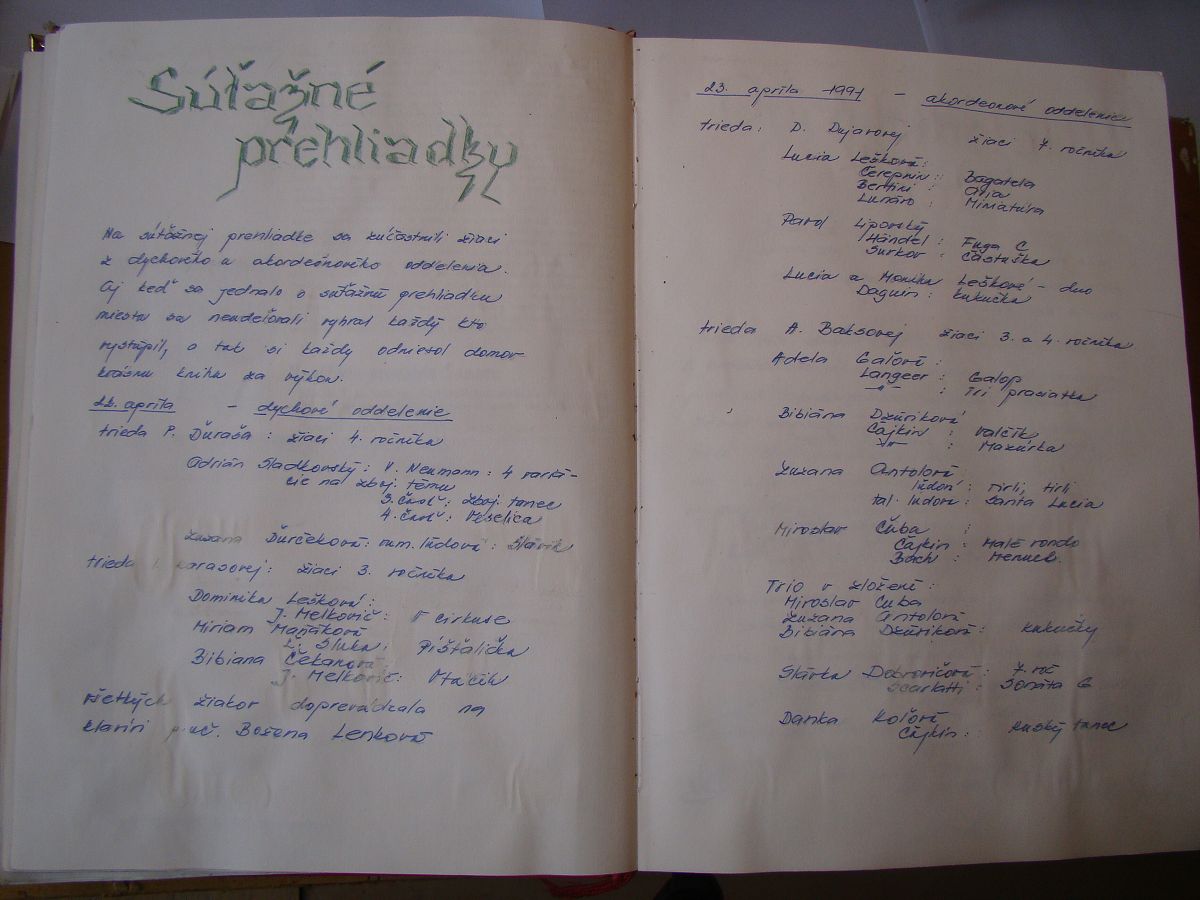 Súťažné
prehliadky
Na súťažnej prehliadke sa zúčastnili žiaci
z dychového a akordeónového oddelenia.
Aj keď sa jednalo o súťažnú prehliadku
miesta sa neudeľovali vyhral každý kto
vystúpil, a tak si každy odniesol domov
krásnu knihu za výkon.
22. apríla - dychové oddelenie
trieda P. Ďuraša : žiaci 4. ročníka
Adrián Sladkovský : V. Neumann : 4 variá-
cie na zboj. tému
3. časť : zboj. tanec
4. časť : Veselica
Zuzana Ďurčeková : rum. ľudová : Slávik
trieda Karasovej : žiaci 3. ročníka
Dominika Lešková :
J. Melkovič : V cirkuse
Miriam Maňáková
Sluka : Píšťalička
Bibiana Čekanová
J. Melkovič : Vtáčik
všetkých žiakov doprevádzala na
klavíri p. uč. Božena Lenková
23. apríla 1991 - akordeonové oddelenie
trieda : D. Dujavovej žiaci 7. ročníka
Lucia Lešková :
Čerepnin : Bagatela
Bertini : Ária
Lunaro : Miniatúra
Pavol Lipovský
Händel : Fuga C
Surkov : Častuška
Lucia a Monika Leškové - duo
Daquin : kukučka
trieda A. Baksovej žiaci 3. a 4. ročníka
Adela Gaľová :
Langeer : Galop
-"- : Tri praciatka
Bibiána Džúriková
Čajkin : Valčík
-"- : Mazúrka
Zuzana Antolová
ľudov : tirli, tirli
tal. ľudová : Santa Lucia
Miroslav Čuba :
Čajkin : Malé rondo
Bach : Menuet
Trio v zložení :
Miroslav Čuba
Zuzana Antolová
Bibiána Džúriková : kukučky
Slávka Dobrovičová : 7. roč
Scarlatti : Sonáta G
Danka Koľová
Čajkin : Ruský tanec